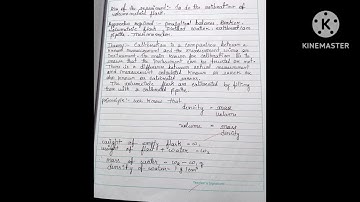 Aim of the experiment:- To do the calibration of
volumetric flask.
Apparatus required - Analytical balance, Beaker,
Volumetric flask, distilled water, calibration
pipette, Thermometer.
Theory - Calibration is a comparison between a
known measurement and the measurement using your
instrument. The main reason for calibration is to
ensure that the instrument can be trusted or not.
There is a difference between actual measurement
and measurement calculated known as
known as calibrated error.
The volumetric flask are calibrated by filling
with a calibrated pipette.
principle - we know that
density = mass
volume
volume = mass
density
weight of empty flask = w1
weight of flask + water = w2
mass of water = w2 - w1 g
density of water = 1 g/cm3
KINEMASTER